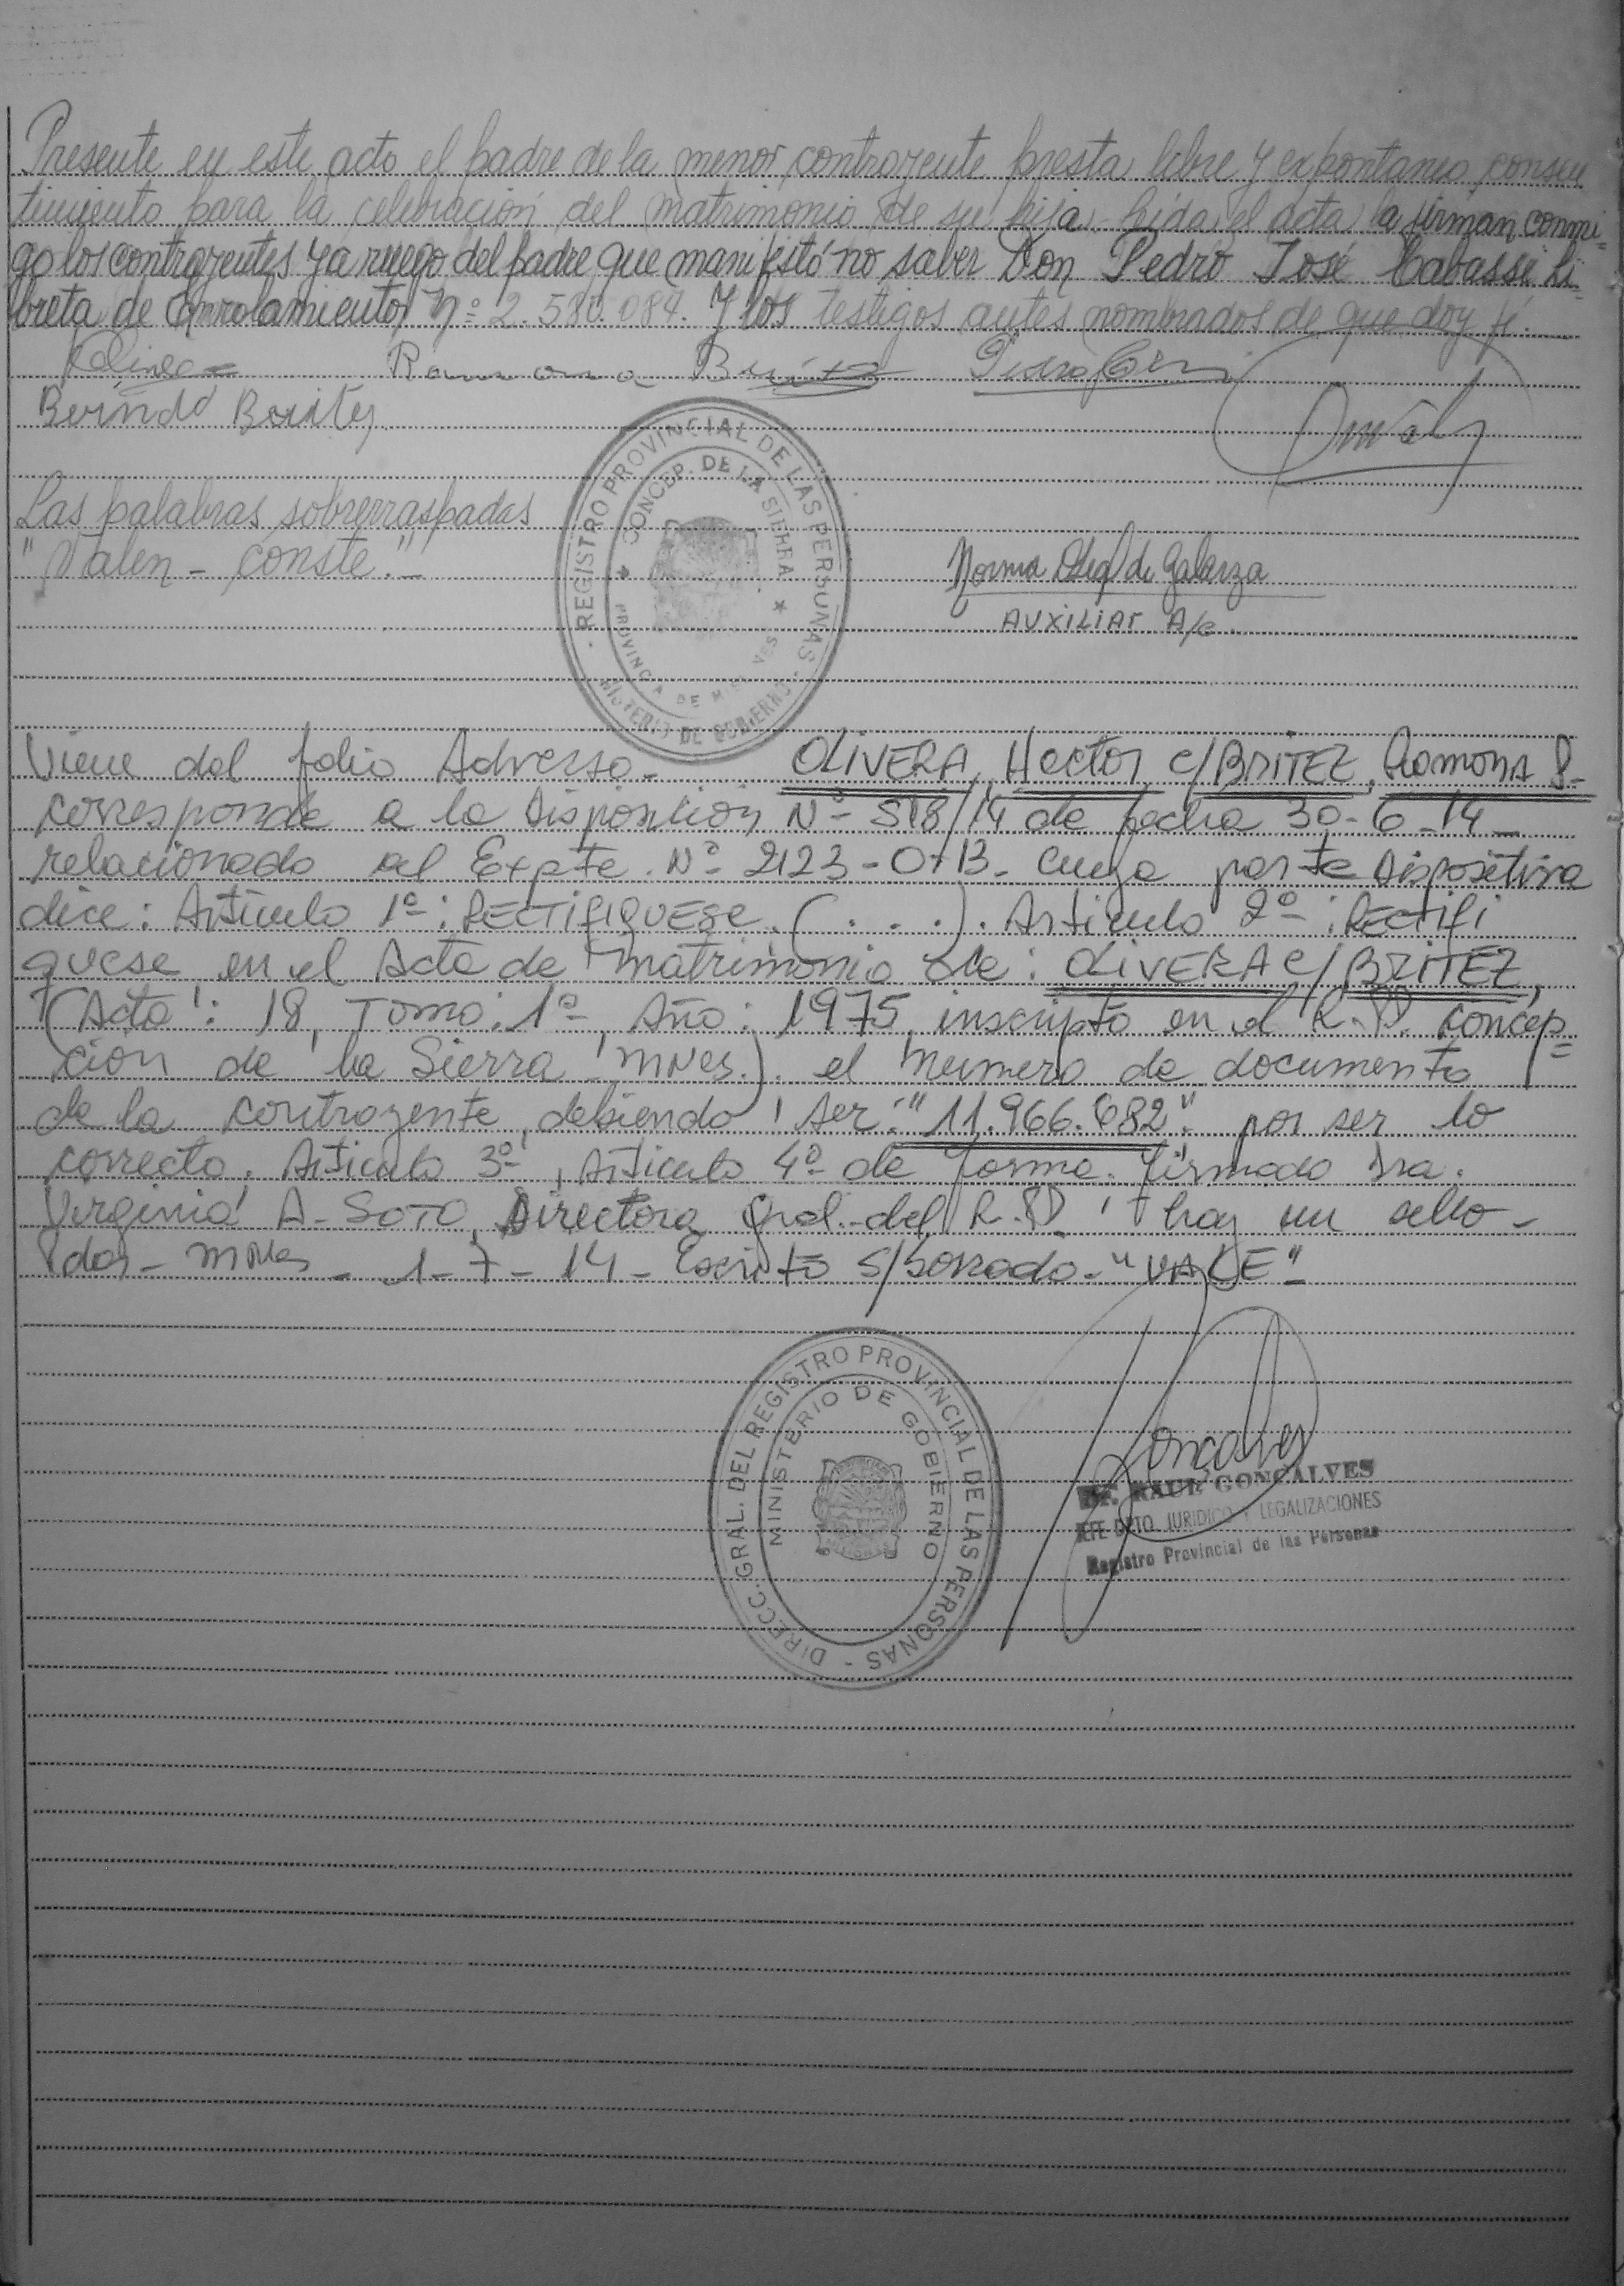 Presente en este acto el padre de la menor contrayente presta libre y expontaneo consen
timiento para la celebración del matrimonio de su hija. Leida el acta la firman conmi-
go los contrayentes y a ruego del padre que manifestó no saber Don Pedro José Cabassi Li-
breta de Enrolamiento Nº 2.580.084. Y los testigos antes nombrados de que doy fé.
Olivera Ramona Britez
Las palabras sobrerraspadas
"Valen - conste."-
Norma de Galarza
AUXILIAR A/c.
REGISTRO PROVINCIAL DE LAS PERSONAS - MINISTERIO DE GOBIERNO -
CONCEP. DE LA SIERRA ★ PROVINCIA DE MISIONES ★
Viene del folio Adverso- OLIVERA, Hector c/ BRITEZ, Ramona
corresponde a la Disposicion Nº 518/14 de fecha 30-6-14-
relacionado al Expte. Nº 2123-0-13- cuya parte Dispositiva
dice: Articulo 1º: RECTIFIQUESE. (. . .). Articulo 2º: RECTIFI
quese en el Acta de matrimonio de: OLIVERA c/ BRITEZ,
(Acta: 18, Tomo: 1º, Año: 1975, inscripto en el R.P.P. Concep=
cion de la Sierra Mnes.). el Numero de documento
de la contrayente, debiendo ser: "11.966.682" por ser lo
correcto. Articulo 3º, Articulo 4º de forma. Firmado Dra.
Virginia A. SOTO, Directora Gral. del R.P.P. hay un sello-
Pdas- Mnes - 1-7-14- Escrito s/borrado- "VALE"-
DIRECC. GRAL. DEL REGISTRO PROVINCIAL DE LAS PERSONAS -
MINISTERIO DE GOBIERNO
Goncalves
Dr. RAUL GONCALVES
JEFE DPTO JURIDICO Y LEGALIZACIONES
Registro Provincial de las Personas